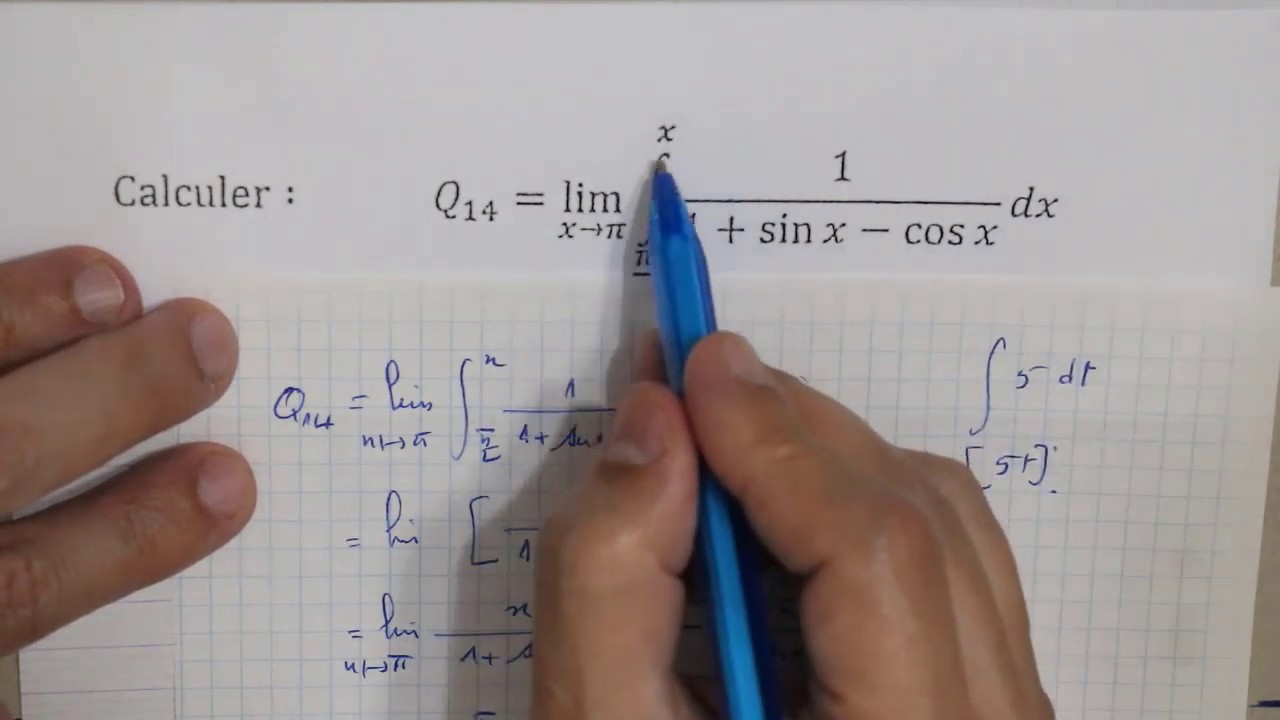 Calculer : Q₁₄ = lim x→π ∫ π x 1 / + sin x − cos x dx
Q₁₄ = lim x↦π ∫ π/2 x 1 / 1+ sin
∫ 5 dt
[5t]
= lim [ / 1
= lim x↦π x / 1+ s